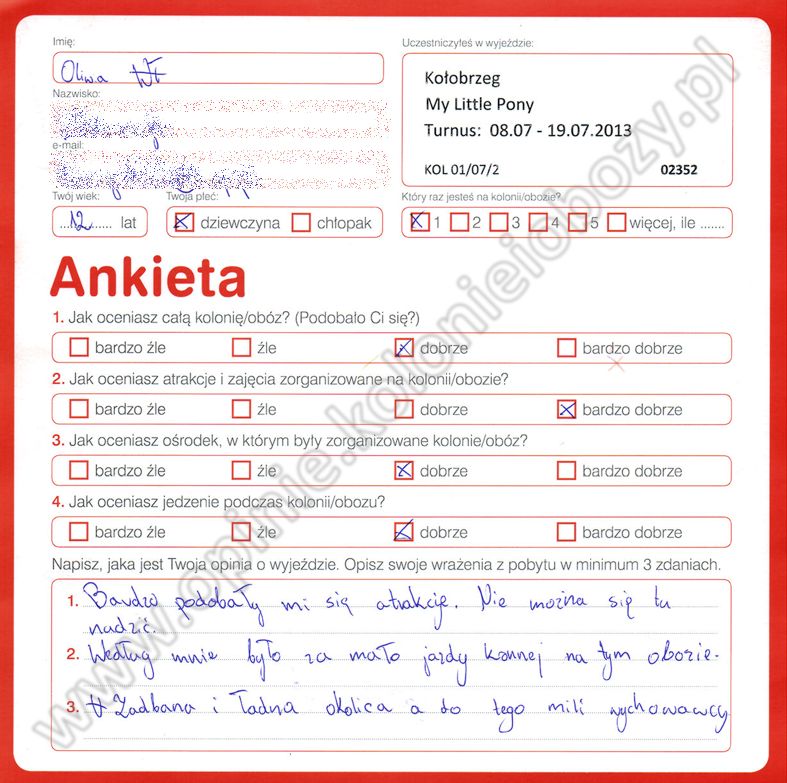 Imię:
Oliwa
Uczestniczyłeś w wyjeździe:
Kołobrzeg
My Little Pony
Turnus: 08.07 - 19.07.2013
KOL 01/07/2 02352
Nazwisko:
e-mail:
Twój wiek: Twoja płeć: Który raz jesteś na kolonii/obozie?
...12...... lat dziewczyna chłopak 1 2 3 4 5 więcej, ile .......
Ankieta
1. Jak oceniasz całą kolonię/obóz? (Podobało Ci się?)
bardzo źle źle dobrze bardzo dobrze
2. Jak oceniasz atrakcje i zajęcia zorganizowane na kolonii/obozie?
bardzo źle źle dobrze bardzo dobrze
3. Jak oceniasz ośrodek, w którym były zorganizowane kolonie/obóz?
bardzo źle źle dobrze bardzo dobrze
4. Jak oceniasz jedzenie podczas kolonii/obozu?
bardzo źle źle dobrze bardzo dobrze
Napisz, jaka jest Twoja opinia o wyjeździe. Opisz swoje wrażenia z pobytu w minimum 3 zdaniach.
1. Bardzo podobały mi się atrakcje. Nie można się tu
nudzić.
2. Według mnie było za mało jazdy konnej na tym obozie.
3. Zadbana i ładna okolica a do tego mili wychowawcy
www.opinie.kolonieiobozy.pl